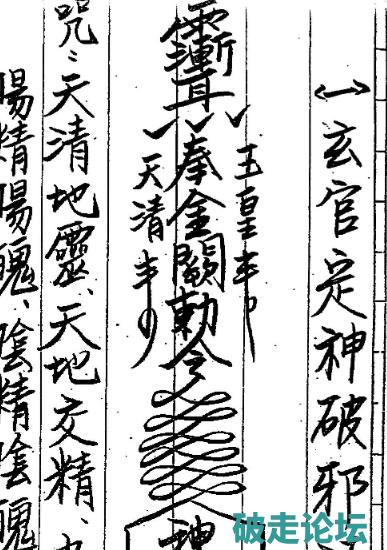 ㈠玄官定神破邪
玉皇丰
䨬
奉金闕勅令
神
天清丰
咒:天清地靈、天地交精、九
陽精陽魄、陰精陰魄
破走论坛